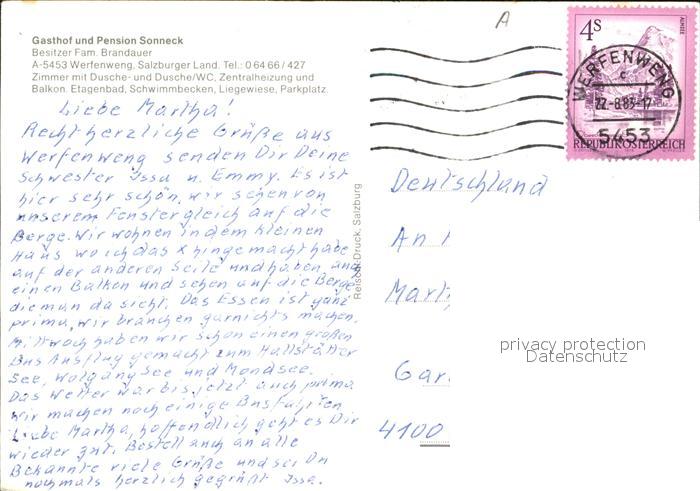 A
Gasthof und Pension Sonneck
Besitzer Fam. Brandauer
A-5453 Werfenweng, Salzburger Land. Tel.: 0 64 66 / 427
Zimmer mit Dusche- und Dusche/WC, Zentralheizung und
Balkon. Etagenbad, Schwimmbecken, Liegewiese, Parkplatz.
Liebe Martha!
Recht herzliche Grüße aus
Werfenweng senden Dir Deine
Schwester Issa u. Emmy. Es ist
hier sehr schön, wir sehen von
unserem Fenster gleich auf die
Berge. Wir wohnen in dem kleinen
Haus wo ich das x hingemacht habe
auf der anderen Seite und haben
einen Balkon und sehen auf die Berge
die man da sieht. Das Essen ist ganz
prima, wir brauchen garnichts machen.
Mittwoch haben wir schon einen großen
Bus Ausflug gemacht zum Hallstätter
See, Wolfgang See und Mondsee.
Das Wetter war bis jetzt auch prima
Wir machen noch einige Busfahrten,
Liebe Martha, hoffentlich geht es Dir
wieder gut. Bestell auch an alle
Bekannte viele Grüße und sei Du
nochmals herzlich gegrüßt Issa.
Reisch-Druck, Salzburg
4S
ALMSEE
REPUBLIK ÖSTERREICH
WERFENWENG
c
22.-8.83-17
5453
Deutschland
An
Mart
Gar
4100
privacy protection
Datenschutz